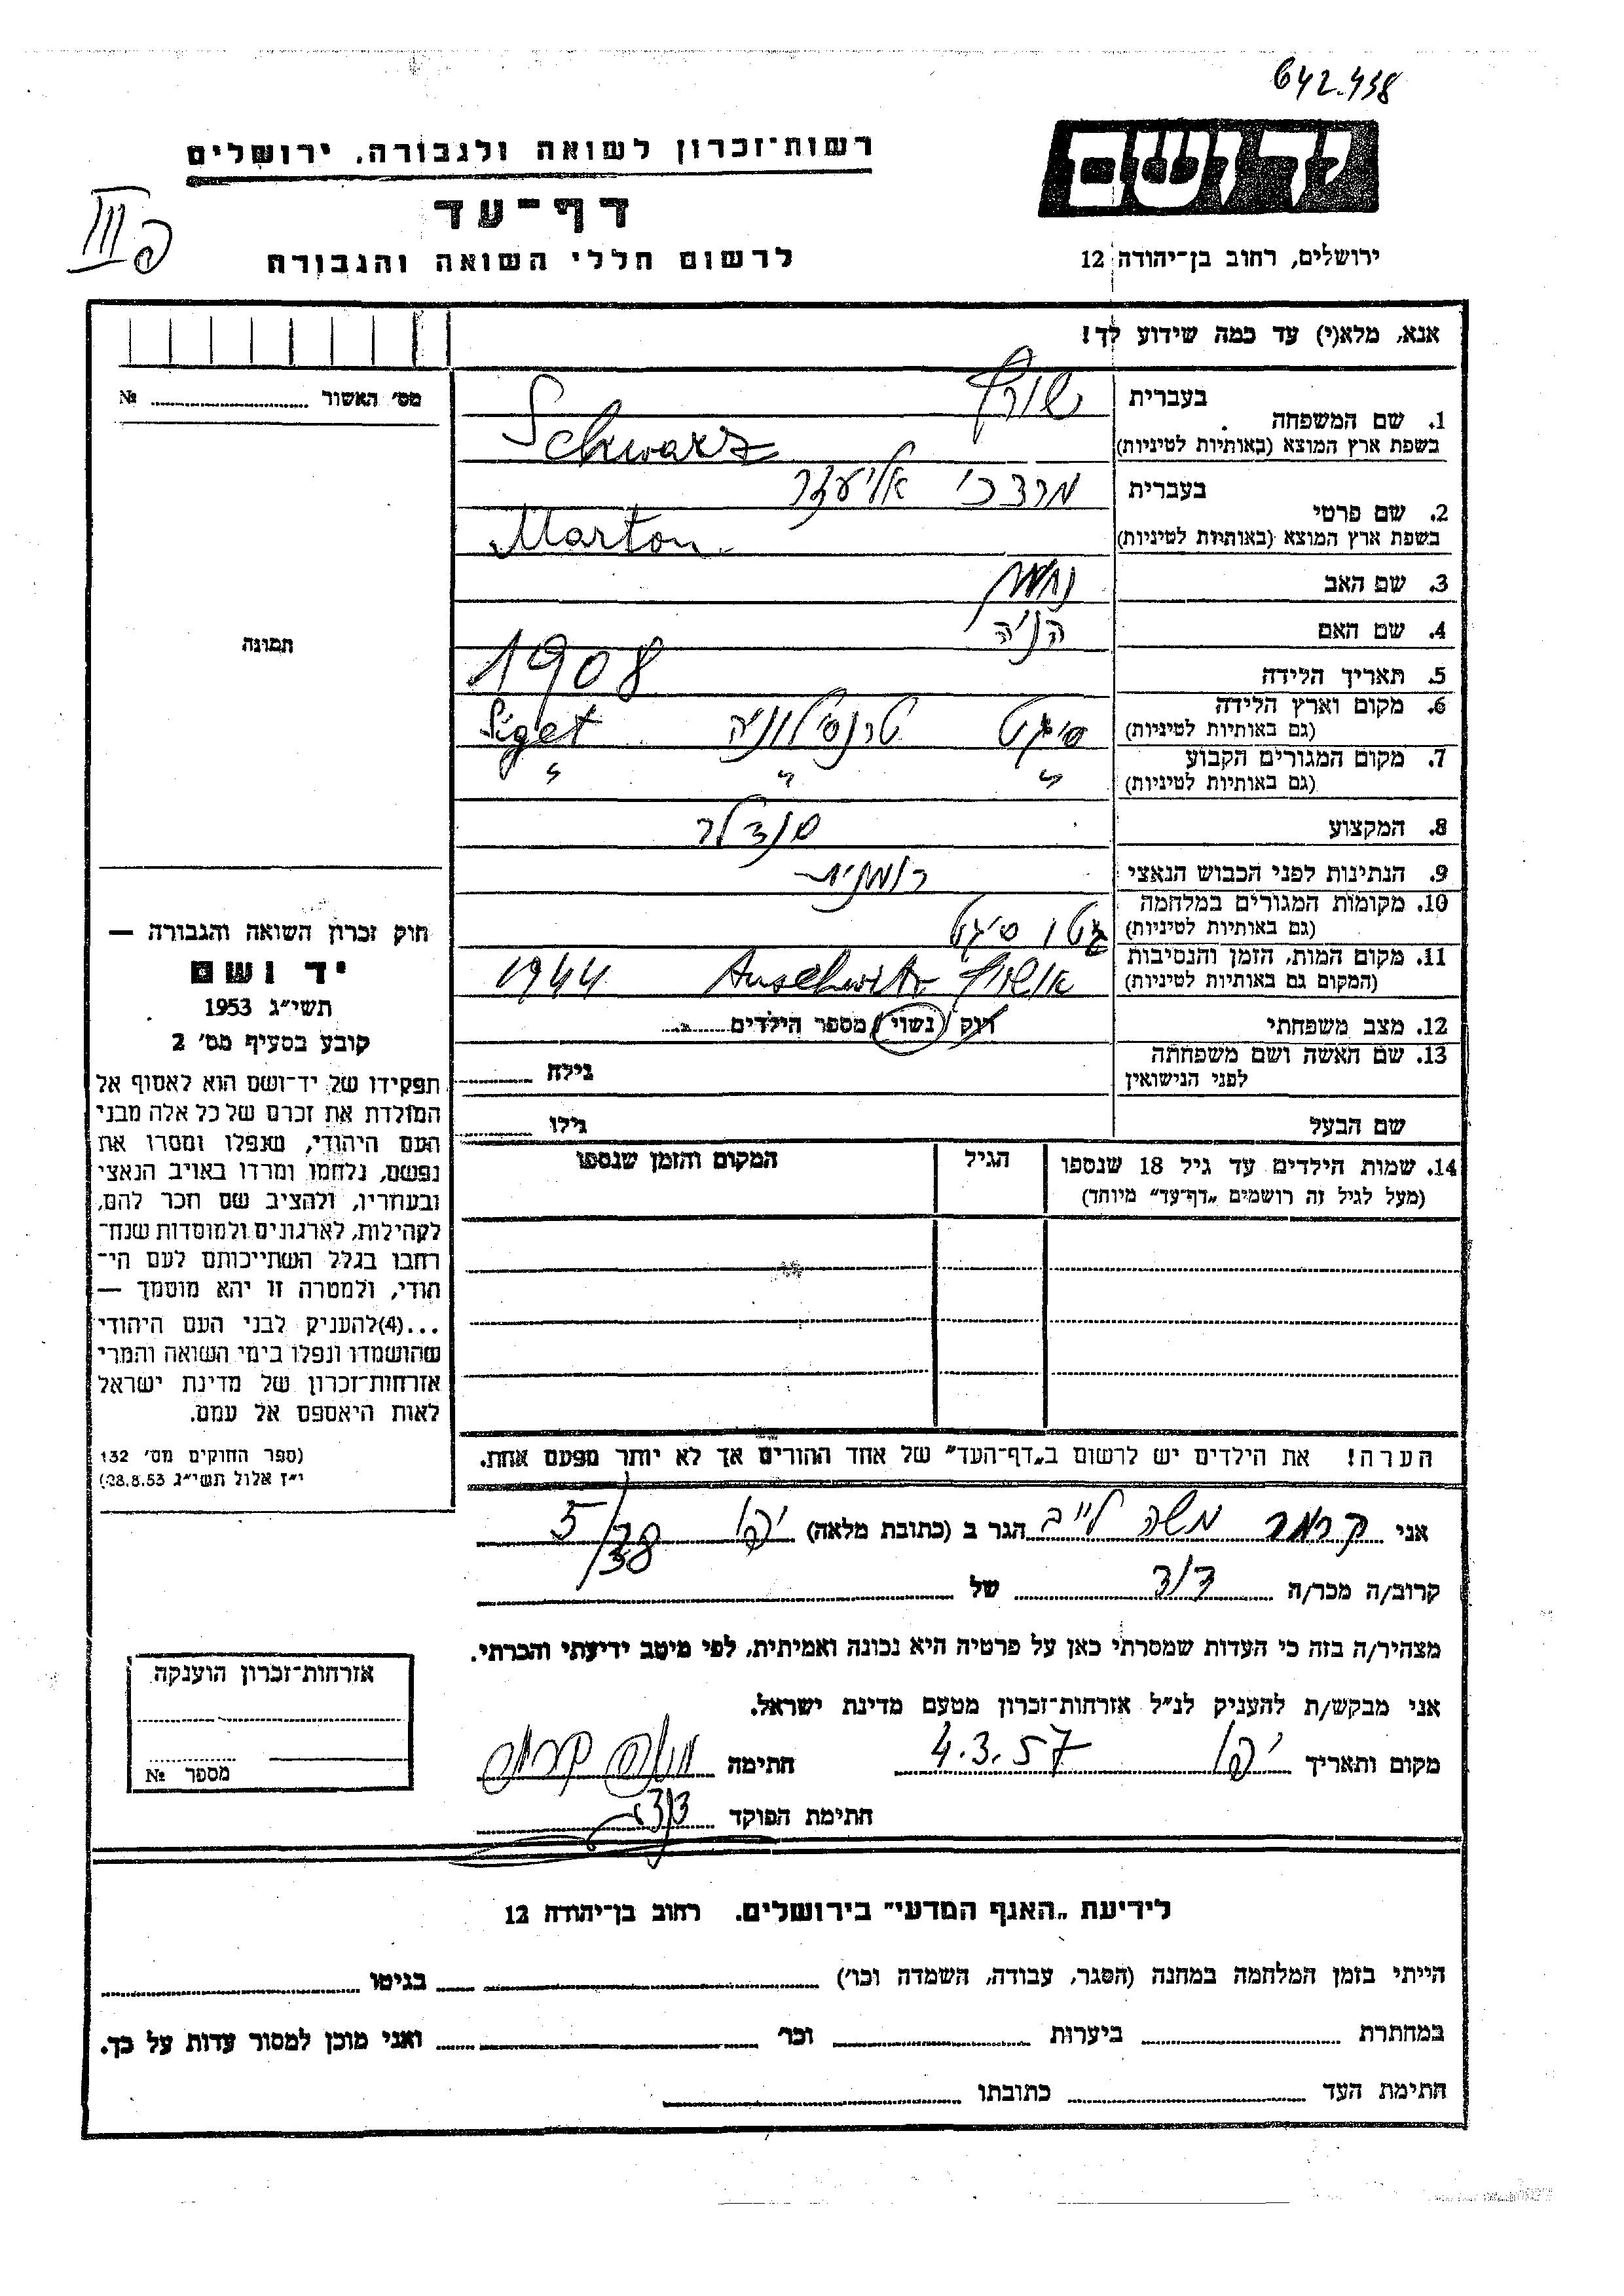 642.438
יד ושם
רשות־זכרון לשואה ולגבורה, ירושלים
דף־עד
לרשום חללי השואה והגבורה
ירושלים, רחוב בן־יהודה 12
III
אנא, מלא(י) עד כמה שידוע לך!
מס׳ האשור № 
תמונה
1. שם המשפחה
בעברית
שורץ
בשפת ארץ המוצא (באותיות לטיניות)
Schwarz
2. שם פרטי
בעברית
מרדכי אליעזר
בשפת ארץ המוצא (באותיות לטיניות)
Marton
3. שם האב
4. שם האם
5. תאריך הלידה 1908
6. מקום וארץ הלידה (גם באותיות לטיניות) סיגט טרנסילוניה Siget
7. מקום המגורים הקבוע (גם באותיות לטיניות) " " "
8. המקצוע סנדלר
9. הנתינות לפני הכבוש הנאצי רומנית
10. מקומות המגורים במלחמה (גם באותיות לטיניות) גטו סיגט
11. מקום המות, הזמן והנסיבות (המקום גם באותיות לטיניות) אושויץ Auschwitz 1944
12. מצב משפחתי רווק / נשוי / מספר הילדים
13. שם האשה ושם משפחתה לפני הנישואין גילה
שם הבעל גילו
14. שמות הילדים עד גיל 18 שנספו הגיל המקום והזמן שנספו
(מעל לגיל זה רושמים „דף־עד” מיוחד)
הערה! את הילדים יש לרשום ב„דף־העד” של אחד ההורים אך לא יותר מפעם אחת.
חוק זכרון השואה והגבורה —
יד ושם
תשי״ג 1953
קובע בסעיף מס׳ 2
תפקידו של יד־ושם הוא לאסוף אל
המולדת את זכרם של כל אלה מבני
העם היהודי, שנפלו ומסרו את
נפשם, נלחמו ומרדו באויב הנאצי
ובעוזריו, ולהציב שם וזכר להם,
לקהילות, לארגונים ולמוסדות שנח־
רבו בגלל השתייכותם לעם הי־
הודי, ולמטרה זו יהא מוסמך —
...(4) להעניק לבני העם היהודי
שהושמדו ונפלו בימי השואה והמרי
אזרחות־זכרון של מדינת ישראל
לאות היאספם אל עמם.
(ספר החוקים מס׳ 132
י״ז אלול תשי״ג 28.8.53)
אני קרמר משה לייב הגר ב (כתובת מלאה) יפו 5/38
קרוב/ה מכר/ה דוד של
מצהיר/ה בזה כי העדות שמסרתי כאן על פרטיה היא נכונה ואמיתית, לפי מיטב ידיעתי והכרתי.
אני מבקש/ת להעניק לנ״ל אזרחות־זכרון מטעם מדינת ישראל.
מקום ותאריך יפו 4.3.57 חתימה
חתימת הפוקד
אזרחות־זכרון הוענקה
מספר №
לידיעת „האגף המדעי” בירושלים. רחוב בן־יהודה 12
הייתי בזמן המלחמה במחנה (הסגר, עבודה, השמדה וכו׳) בגיטו
במחתרת ביערות וכו׳ ואני מוכן למסור עדות על כך.
חתימת העד כתובתו